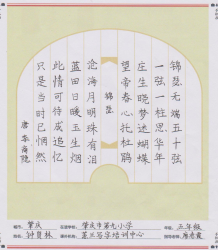 锦瑟无端五十弦
一弦一柱思华年
庄生晓梦迷蝴蝶
望帝春心托杜鹃
锦瑟
沧海月明珠有泪
蓝田日暖玉生烟
此情可待成追忆
只是当时已惘然
唐 李商隐
肇庆
肇庆市第九小学
五年级
钟贝林